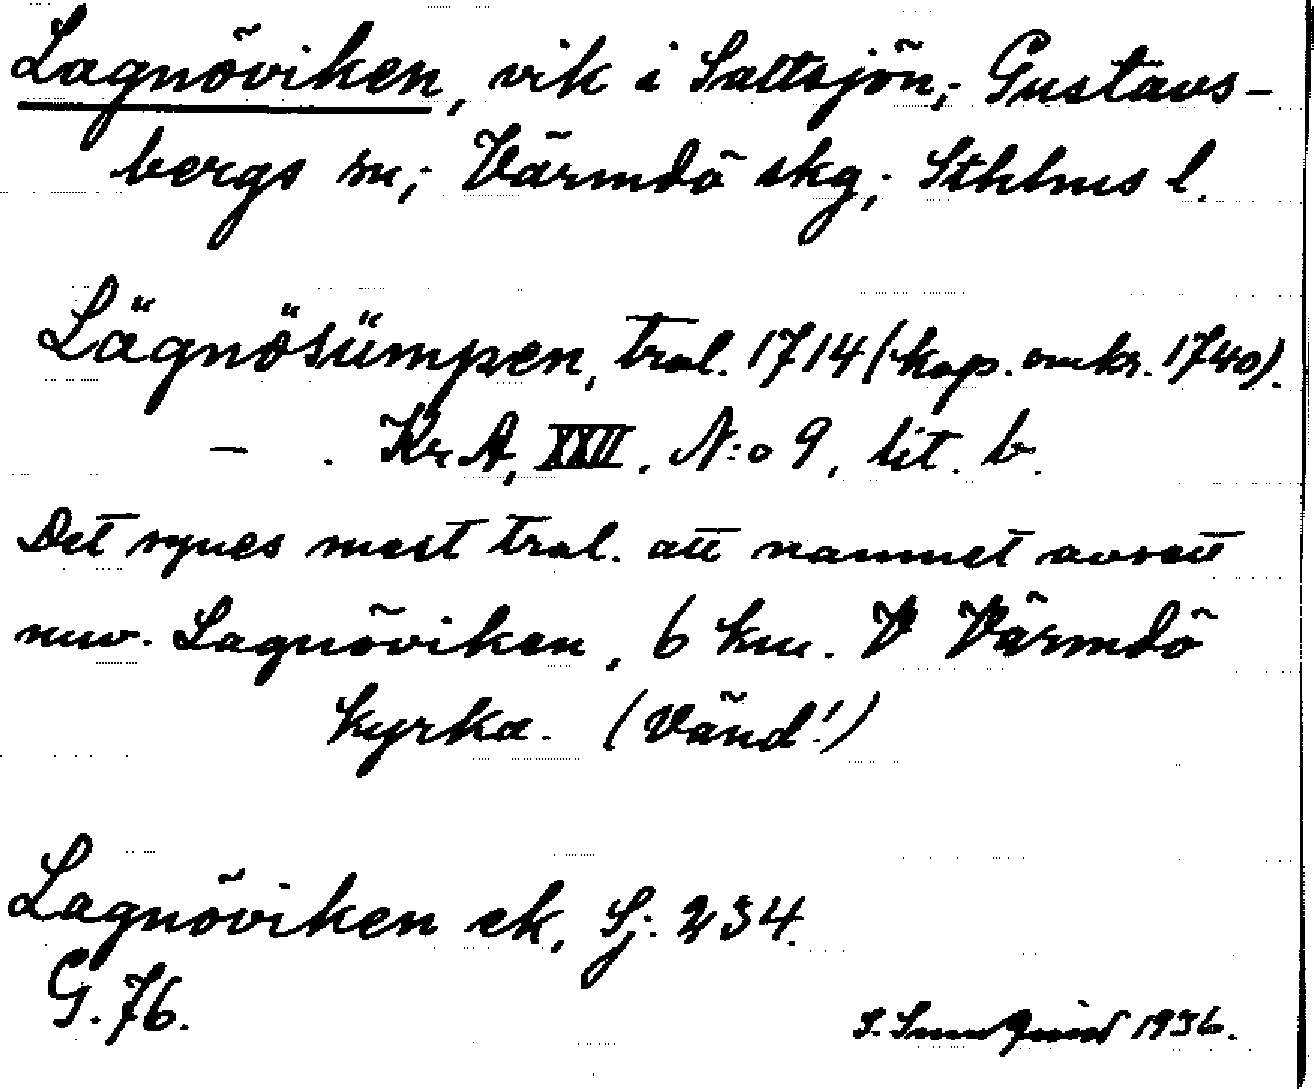 Lagnöviken, vik i Saltsjön; Gustavs-
bergs sn; Värmdö skg; Sthlms l.
Lägnösümpen, trol. 1714 (kop. omkr. 1740).
— . KrA, XXII, N:o 9, lit. b.
Det synes mest trol. att namnet avsett
nuv. Lagnöviken, 6 km. V Värmdö
kyrka. (Vänd!)
Lagnöviken ek, Sj. 234.
G. 76.
1936.